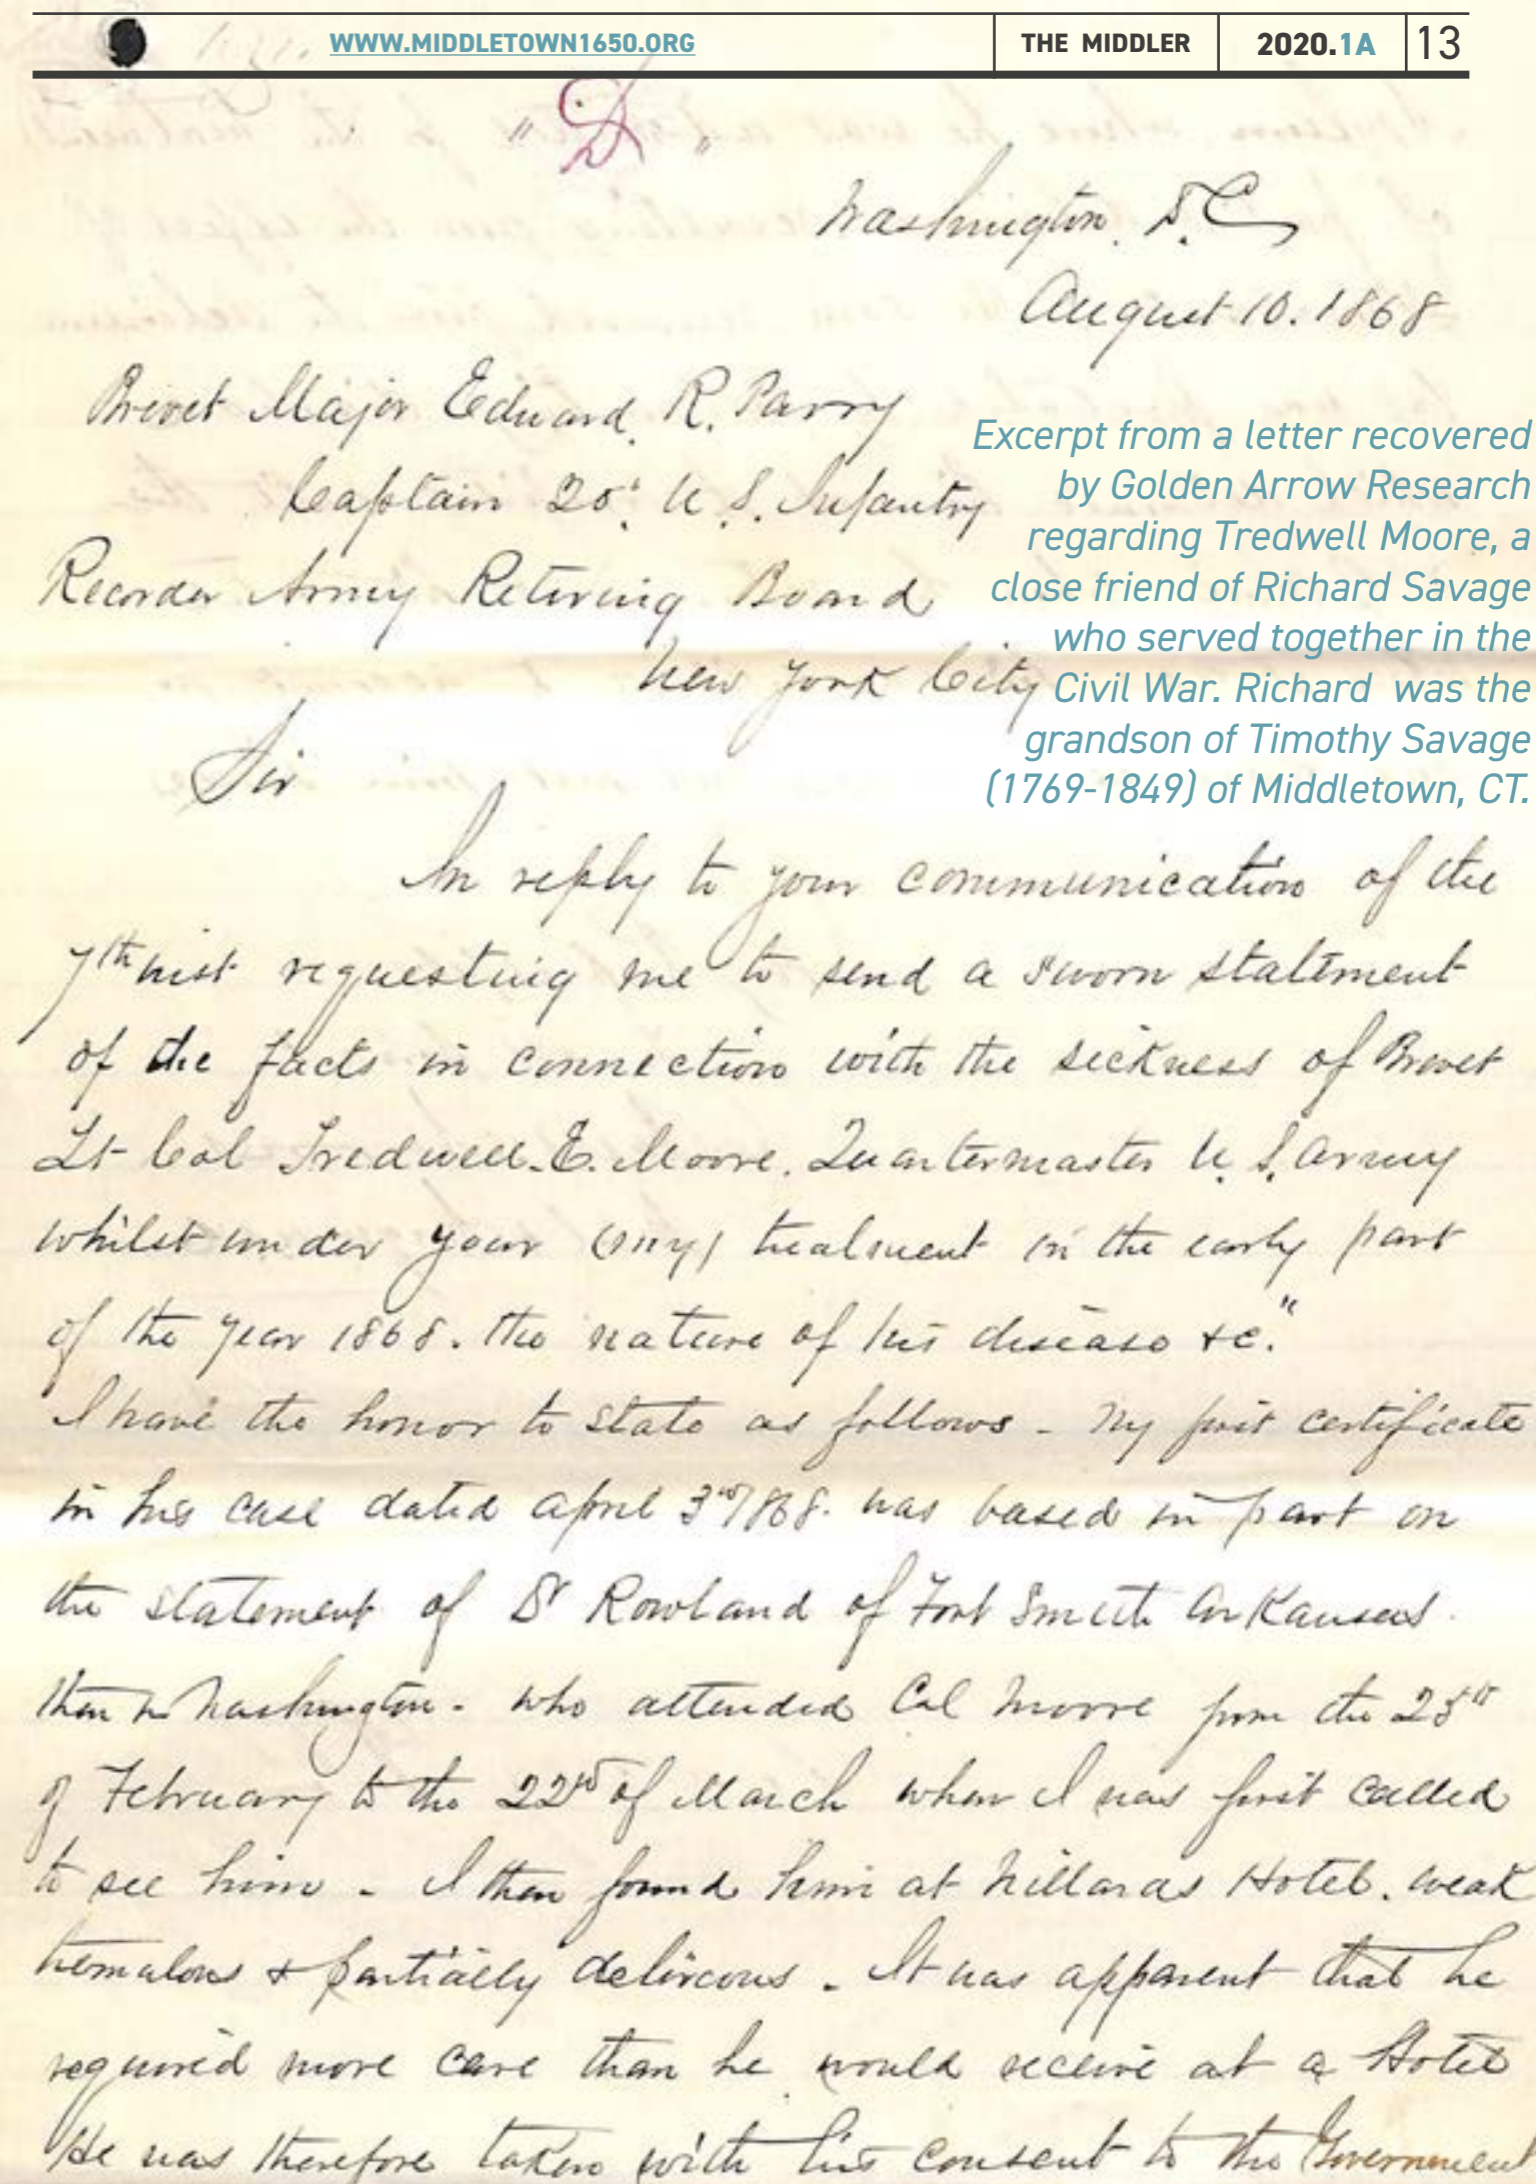 WWW.MIDDLETOWN1650.ORG THE MIDDLER 2020.1A 13
"D"
Washington. D.C
August 10. 1868
Brevet Major Edward. R. Parry
Captain 20. U.S. Infantry
Recorder Army Retiring Board
New York City
Excerpt from a letter recovered
by Golden Arrow Research
regarding Tredwell Moore, a
close friend of Richard Savage
who served together in the
Civil War. Richard was the
grandson of Timothy Savage
(1769-1849) of Middletown, CT.
Sir
In reply to your communication of the
7th inst requesting me to send a sworn statement
of the facts in connection with the sickness of Brevet
Lt Col Tredwell. E. Moore. Quartermaster U.S. Army
whilst under your (my) treatment in the early part
of the year 1868. the nature of his disease &c."
I have the honor to state as follows - My first certificate
in his case dated April 3rd/868. was based in part on
the statement of Dr Rowland of Fort Smith Arkansas.
then in Washington - who attended Col Moore from the
of February to the 22nd of March when I was first called
to see him - I then found him at Willards Hotel. weak
tremulous & partially delirious - It was apparent that he
required more care than he would receive at a Hotel
He was therefore taken with his consent to the Government